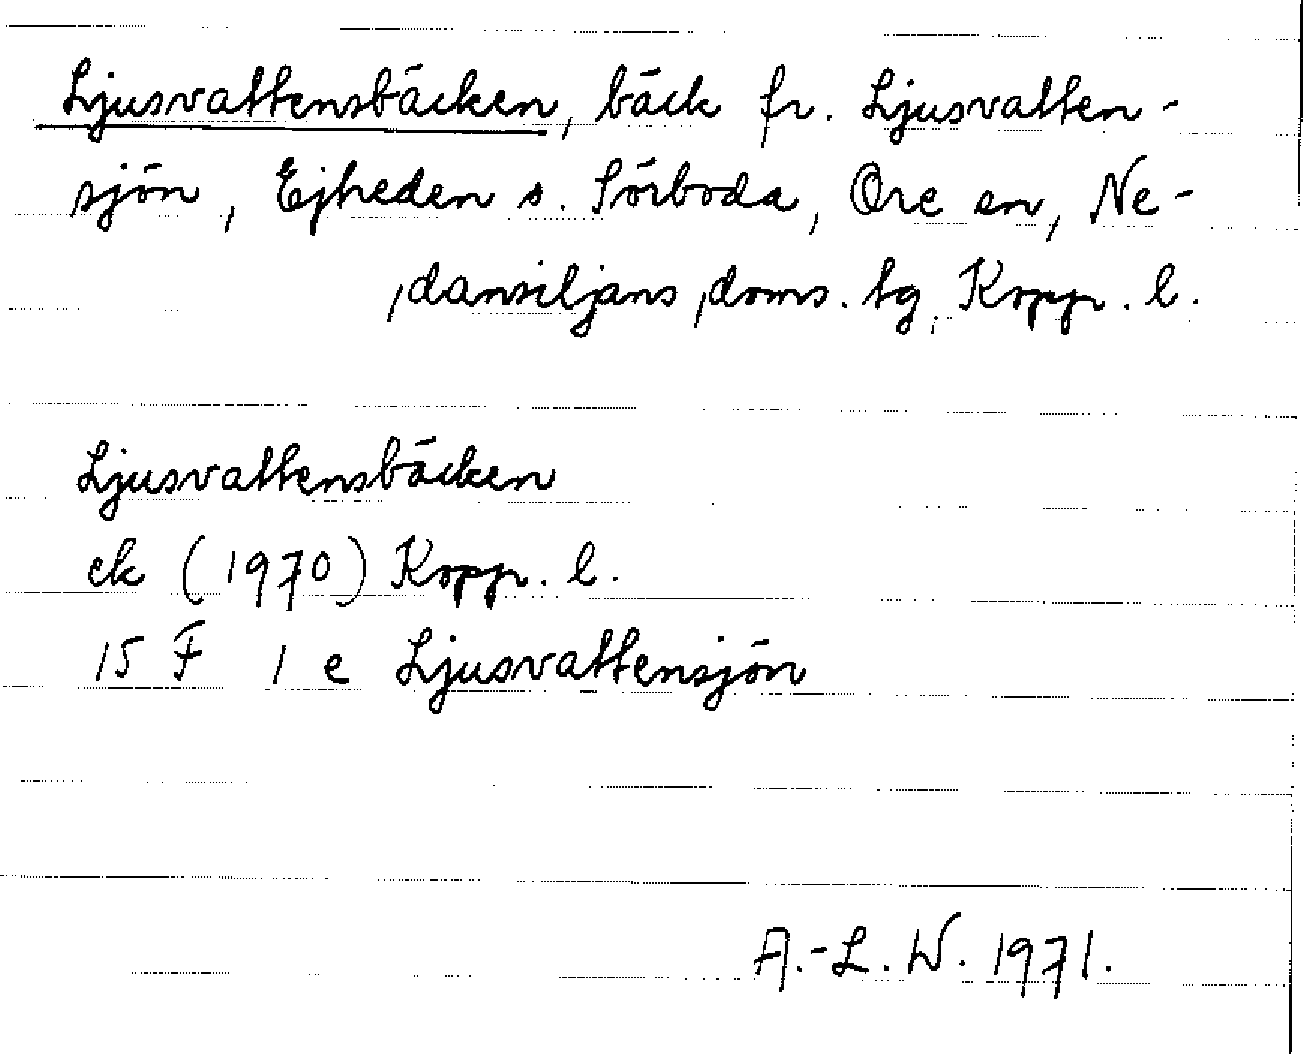 Ljusvattensbäcken, bäck fr. Ljusvatten-
sjön, Ejheden s. Sörboda, Ore sn, Ne-
dansiljans doms. tg, Kopp. l.
Ljusvattensbäcken
ek (1970) Kopp. l.
15 F 1 e Ljusvattensjön
A.-L. W. 1971.